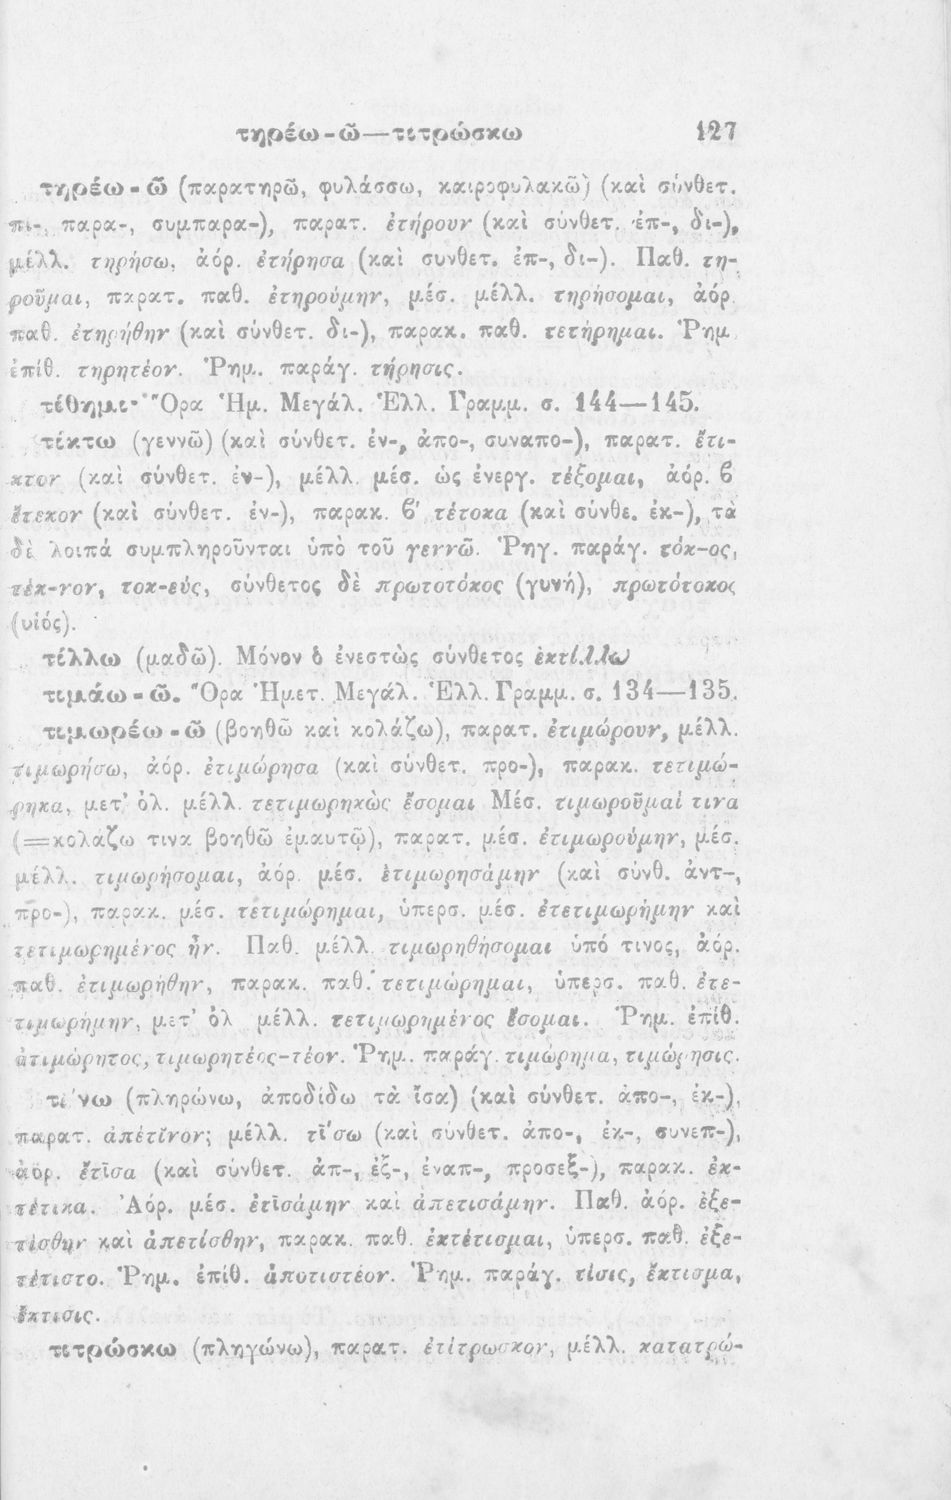 τηρέω-ῶ—τιτρώσκω 127
τηρέω-ῶ (παρατηρῶ, φυλάσσω, καιροφυλακῶ) (καὶ σύνθετ.
πι-, παρα-, συμπαρα-), παρατ. ἐτήρουν (καὶ σύνθετ. ἐπ-, δι-),
μέλλ. τηρήσω, ἀόρ. ἐτήρησα (καὶ συνθετ. ἐπ-, δι-). Παθ. τη-
ροῦμαι, παρατ. παθ. ἐτηρούμην, μέσ. μέλλ. τηρήσομαι, ἀόρ.
παθ. ἐτηρήθην (καὶ σύνθετ. δι-), παρακ. παθ. τετήρημαι. Ῥημ.
ἐπίθ. τηρητέον. Ῥημ. παράγ. τήρησις.
τέθημι· Ὅρα Ἡμ. Μεγάλ. Ἑλλ. Γραμμ. σ. 144—145.
τίκτω (γεννῶ) (καὶ σύνθετ. ἐν-, ἀπο-, συναπο-), παρατ. ἔτι-
κτον (καὶ σύνθετ. ἐν-), μέλλ. μέσ. ὡς ἐνεργ. τέξομαι, ἀόρ. β
ἔτεκον (καὶ σύνθετ. ἐν-), παρακ. β' τέτοκα (καὶ σύνθε. ἐκ-), τὰ
δὲ λοιπά συμπληροῦνται ὑπὸ τοῦ γεννῶ. Ῥηγ. παράγ. τόκ-ος,
τέκ-νον, τοκ-εύς, σύνθετος δὲ πρωτοτόκος (γυνή), πρωτότοκος
(υἱός).
τίλλω (μαδῶ). Μόνον ὁ ἐνεστὼς σύνθετος ἐκτίλλω
τιμάω-ῶ. Ὅρα Ἡμετ. Μεγάλ. Ἑλλ. Γραμμ. σ. 134—135.
τιμωρέω-ῶ (βοηθῶ καὶ κολάζω), παρατ. ἐτιμώρουν, μέλλ.
τιμωρήσω, ἀόρ. ἐτιμώρησα (καὶ σύνθετ. προ-), παρακ. τετιμώ-
ρηκα, μετ' ὀλ. μέλλ. τετιμωρηκὼς ἔσομαι Μέσ. τιμωροῦμαί τινα
(=κολάζω τινα βοηθῶ ἐμαυτῷ), παρατ. μέσ. ἐτιμωρούμην, μέσ.
μέλλ. τιμωρήσομαι, ἀόρ. μέσ. ἐτιμωρησάμην (καὶ σύνθ. ἀντ-,
προ-), παρακ. μέσ. τετιμώρημαι, ὑπερσ. μέσ. ἐτετιμωρήμην καὶ
τετιμωρημένος ἦν. Παθ. μέλλ. τιμωρηθήσομαι ὑπό τινος, ἀόρ.
παθ. ἐτιμωρήθην, παρακ. παθ. τετιμώρημαι, ὑπερσ. παθ. ἐτε-
τιμωρήμην, μετ' ὀλ μέλλ. τετιμωρημένος ἔσομαι. Ῥημ. ἐπίθ.
ἀτιμώρητος, τιμωρητέος-τέον. Ῥημ. παράγ. τιμώρημα, τιμώρησις.
τίνω (πληρώνω, ἀποδίδω τὰ ἴσα) (καὶ σύνθετ. ἀπο-, ἐκ-),
παρατ. ἀπέτῑνον; μέλλ. τῑ́σω (καὶ σύνθετ. ἀπο-, ἐκ-, συνεπ-),
ἀόρ. ἔτῑσα (καὶ σύνθετ. ἀπ-, ἐξ-, ἐναπ-, προσεξ-), παρακ. ἐκ-
τέτικα. Ἀόρ. μέσ. ἐτῑσάμην καὶ ἀπετισάμην. Παθ. ἀόρ. ἐξε-
τίσθην καὶ ἀπετίσθην, παρακ. παθ. ἐκτέτισμαι, ὑπερσ. παθ. ἐξε-
τέτιστο. Ῥημ. ἐπίθ. ἀποτιστέον. Ῥημ. παράγ. τίσις, ἔκτισμα,
ἔκτισις.
τιτρώσκω (πληγώνω), παρατ. ἐτίτρωσκον, μέλλ. κατατρώ-